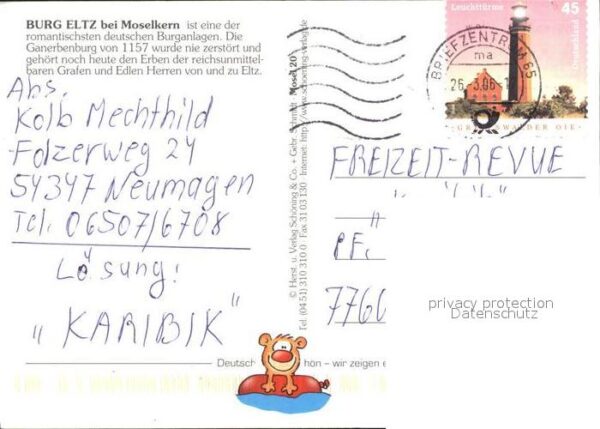 BURG ELTZ bei Moselkern ist eine der
romantischsten deutschen Burganlagen. Die
Ganerbenburg von 1157 wurde nie zerstört und
gehört noch heute den Erben der reichsunmittel-
baren Grafen und Edlen Herren von und zu Eltz.
Abs.
Kolb Mechthild
Folzerweg 24
54347 Neumagen
Tel. 06507/6708
Lösung!
"KARIBIK"
Deutsch
hön – wir zeigen e
© Herst. u. Verlag Schöning & Co. + Gebr. Schmidt · Mosel 20
Tel. (04 51) 310 310 0 · Fax 31 03 130 · Internet: http://www.schoening-verlag.de
Leuchttürme 45
Deutschland
GREIFSWALDER OIE
BRIEFZENTRUM 65
ma
FREIZEIT-REVUE
PF.
7760
privacy protection
Datenschutz